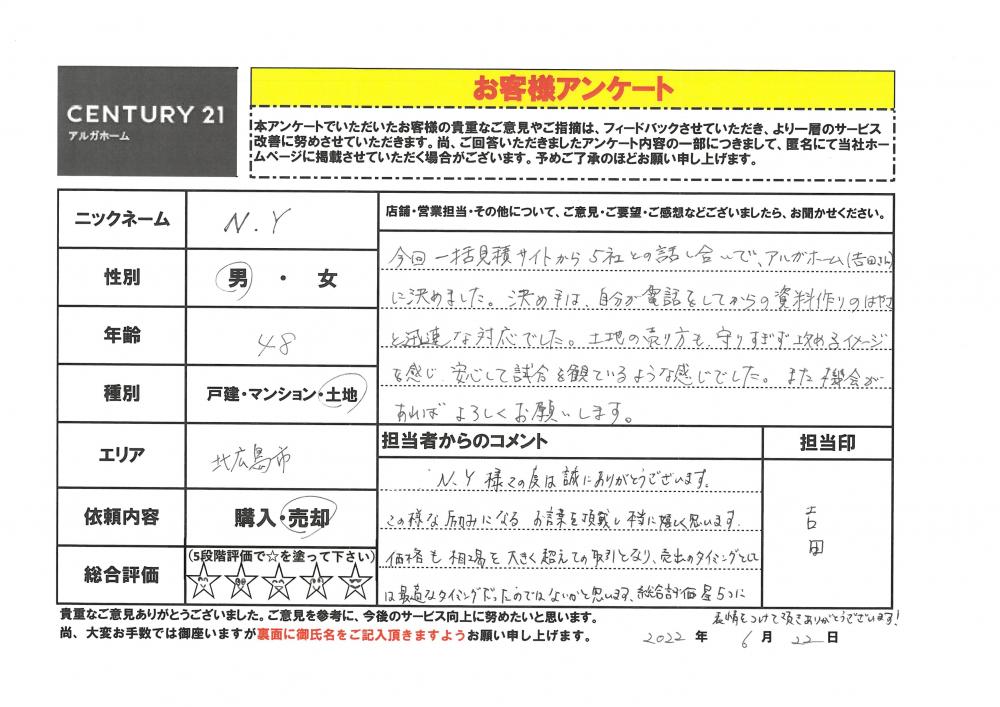 CENTURY 21
アルガホーム
お客様アンケート
本アンケートでいただいたお客様の貴重なご意見やご指摘は、フィードバックさせていただき、より一層のサービス
改善に努めさせていただきます。尚、ご回答いただきましたアンケート内容の一部につきまして、匿名にて当社ホー
ムページに掲載させていただく場合がございます。予めご了承のほどお願い申し上げます。
ニックネーム N.Y
性別 男・女
年齢 48
種別 戸建・マンション・土地
エリア 北広島市
依頼内容 購入・売却
総合評価 (5段階評価で☆を塗って下さい)
店舗・営業担当・その他について、ご意見・ご要望・ご感想などございましたら、お聞かせください。
今回一括見積サイトから5社との話し合いで、アルガホーム(吉田さん)
に決めました。決め手は、自分が電話をしてからの資料作りのはやさ
と迅速な対応でした。土地の売り方も、守りすぎず攻めるイメージ
を感じ、安心して試合を観ているような感じでした。また機会が
あればよろしくお願いします。
担当者からのコメント
N.Y様この度は誠にありがとうございます。
この様な励みになるお言葉を頂戴し本当に嬉しく思います。
価格も相場を大きく超えての取引となり、売出のタイミングとして
は最高なタイミングだったのではないかと思います、総合評価星5つに
表情をつけて頂きありがとうございます!
担当印
吉田
貴重なご意見ありがとうございました。ご意見を参考に、今後のサービス向上に努めたいと思います。
尚、大変お手数では御座いますが裏面に御氏名をご記入頂きますようお願い申し上げます。
2022年 6月 22日